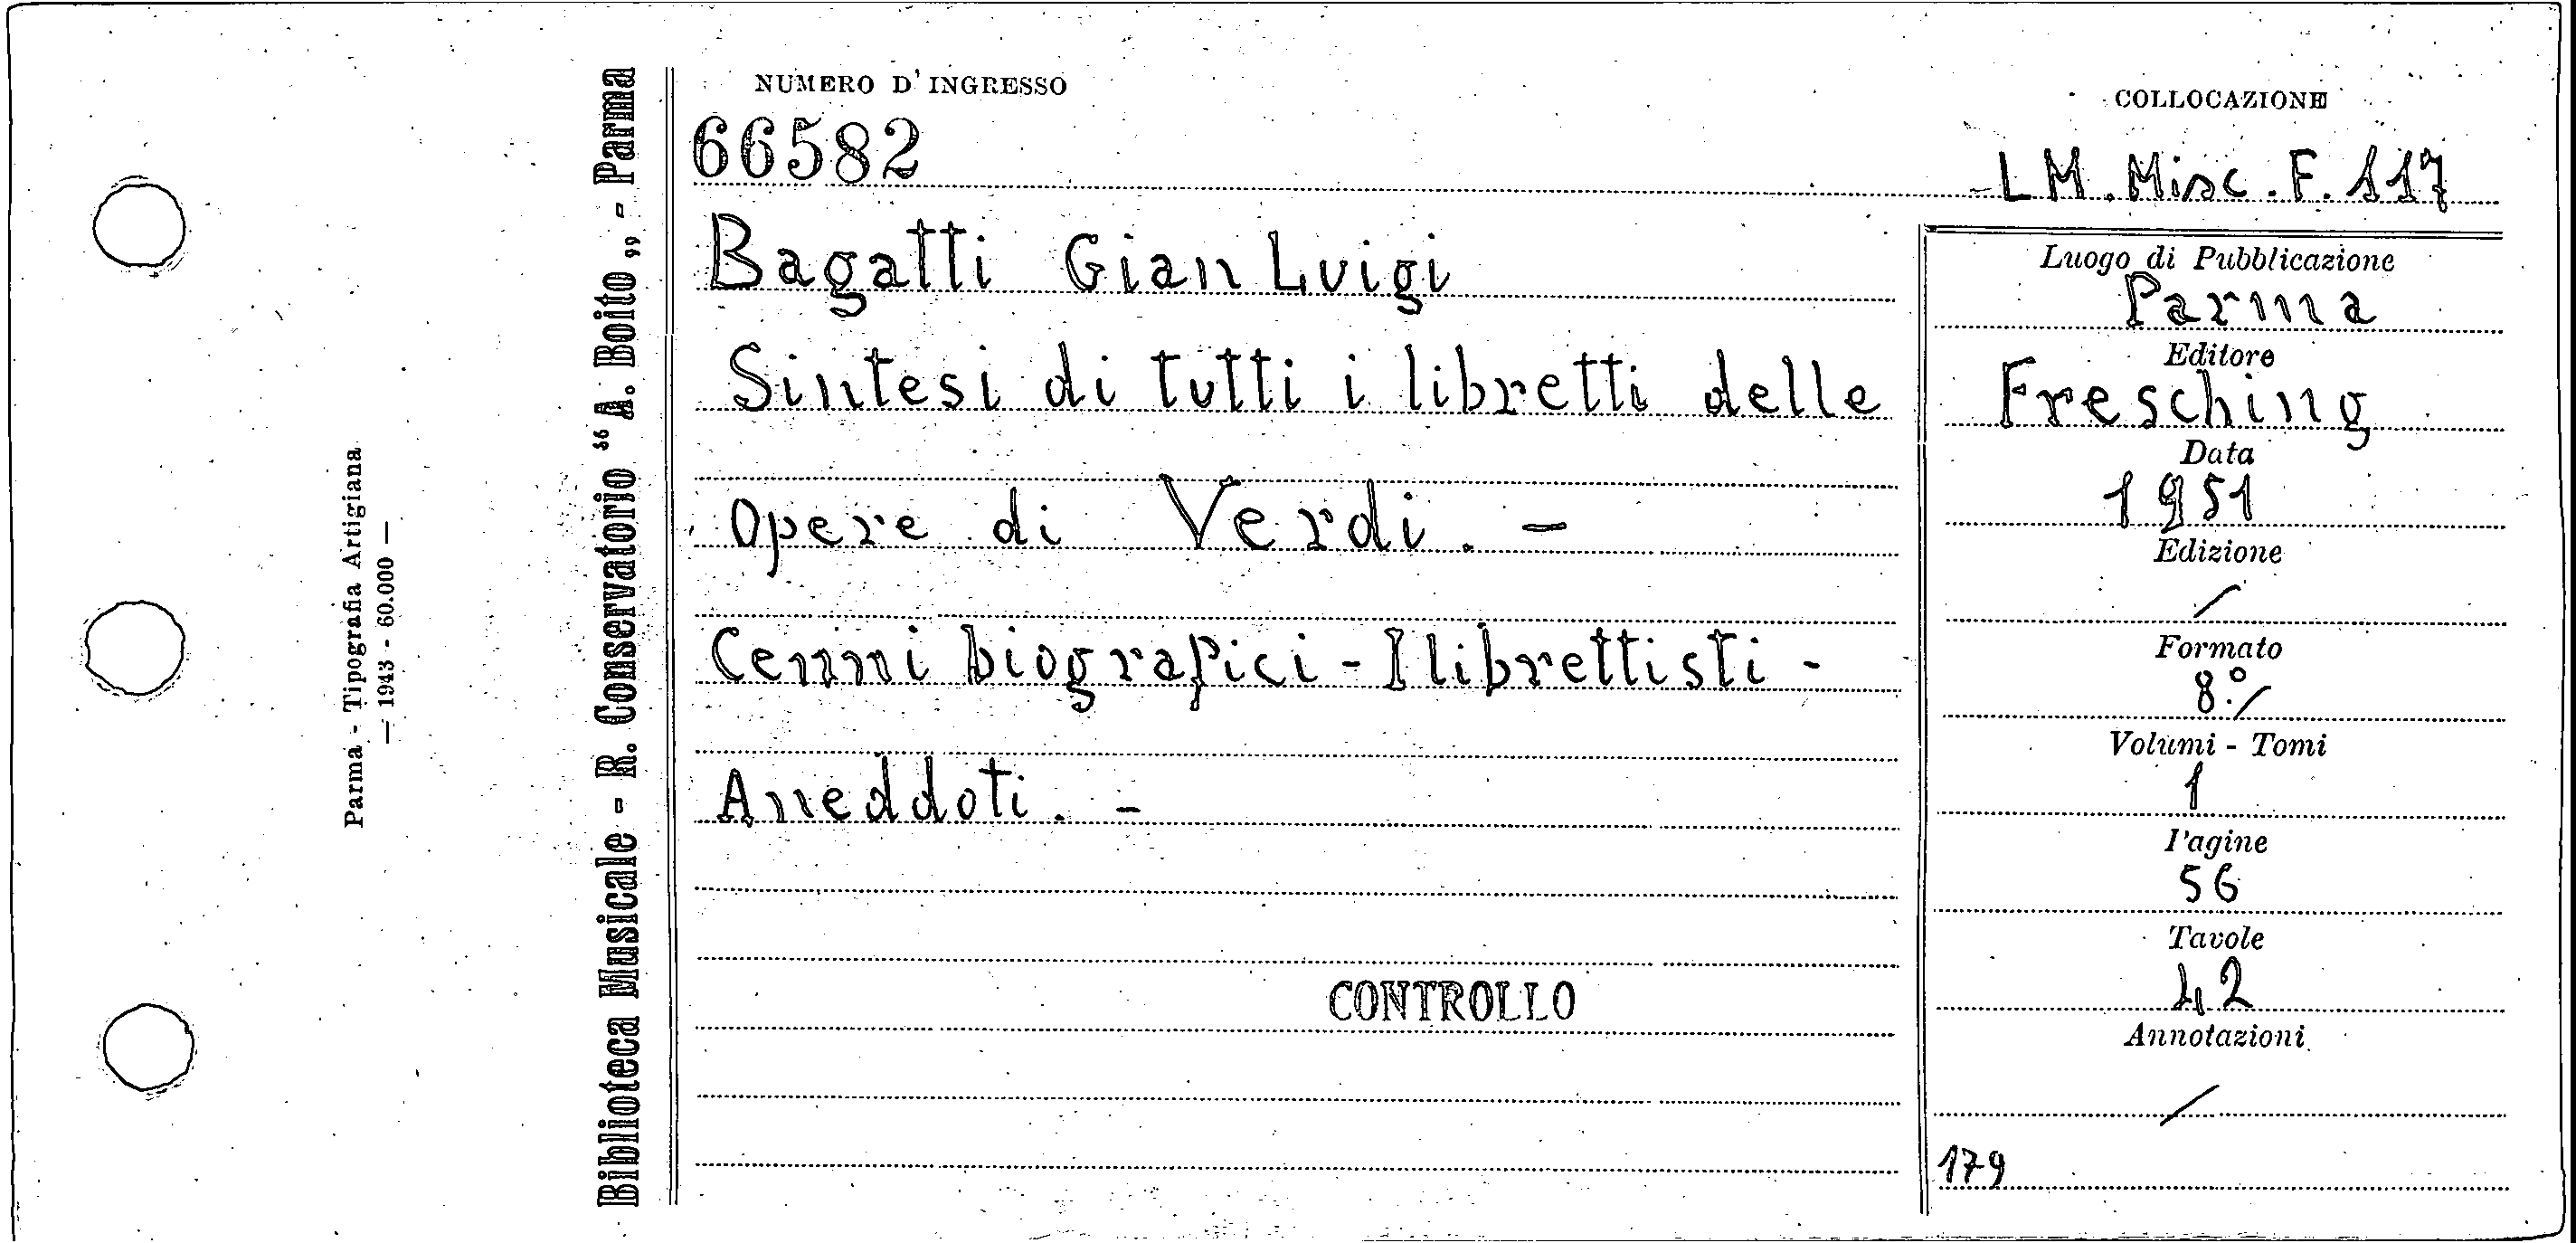 Parma - Tipografia Artigiana
— 1943 - 60.000 —
Biblioteca Musicale - R. Conservatorio “A. Boito„ - Parma
NUMERO D'INGRESSO
66582
Bagatti Gian Luigi
Sintesi di tutti i libretti delle
Opere di Verdi. -
Cenni biografici - I librettisti -
Aneddoti. -
CONTROLLO
COLLOCAZIONE
LM. Misc. F. 117
Luogo di Pubblicazione
Parma
Editore
Fresching
Data
1951
Edizione
/
Formato
8°./
Volumi - Tomi
1
Pagine
56
Tavole
42
Annotazioni
/
179